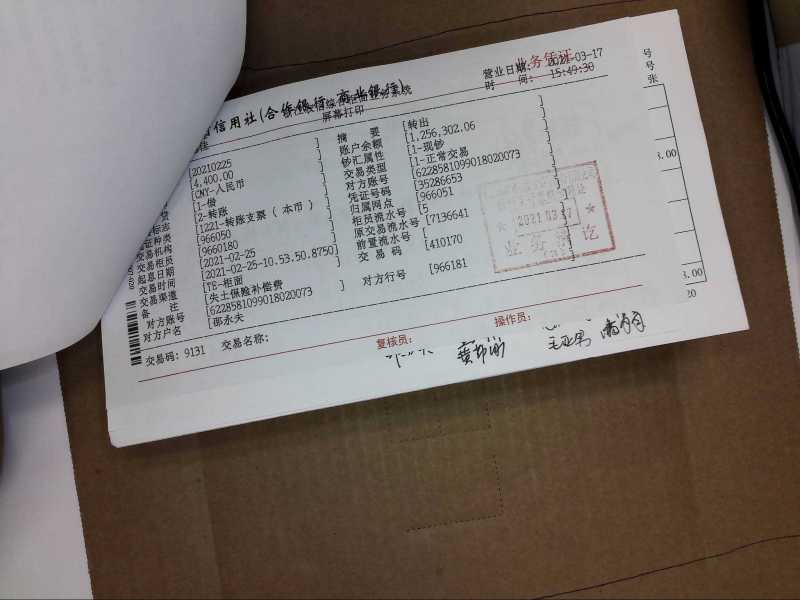 业务凭证
信用社(合作银行、商业银行)
综合柜面业务系统
屏幕打印
营业日期: 2021-03-17
时 间: 15:49:30
号
号
张
摘 要 [转出 ]
[20210225 ] 账户余额 [1,256,302.06 ]
[4,400.00 ] 钞汇属性 [1-现钞 ]
[CNY-人民币 ] 交易类型 [1-正常交易 ]
[1-借 ] 对方账号 [6228581099018020073
[2-转账 ] 凭证号码 [35286653
标志 [1221-转账支票(本币) ] 归属网点 [966051
证种类 [966050 ] 柜员流水号 [5
交易机构 [9660180 ] 原交易流水号 [7136641
交易柜员 [2021-02-25 ] 前置流水号 [410170
起息日期 [2021-02-25-10.53.50.8750] 交 易 码
交易时间 [TE-柜面
交易渠道 [失土保险补偿费 ] 对方行号 [966181
备 注 [6228581099018020073
对方账号 [邵永夫
对方户名
交易码: 9131 交易名称:
复核员: 操作员:
2021.03.17
业务 讫
3.00
3.00
20